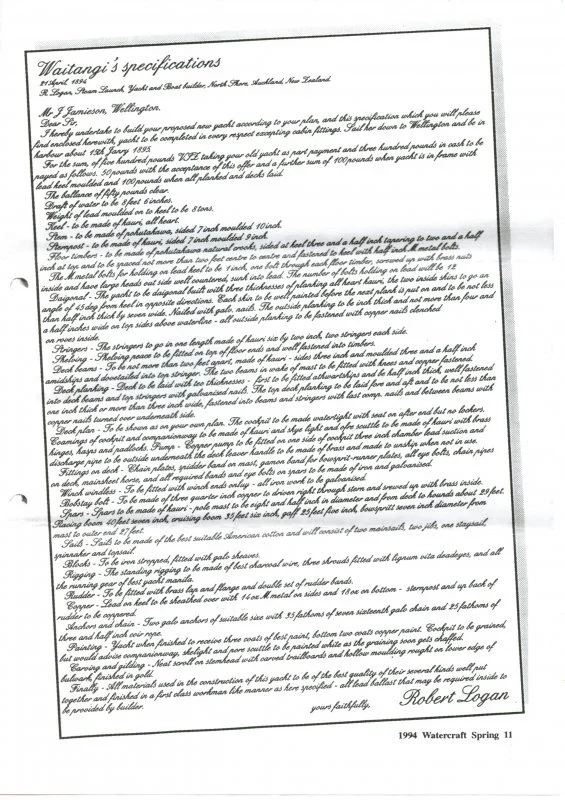 Waitangi's specifications
21 April, 1894
R. Logan, Steam Launch, Yacht and Boat builder, North Shore, Auckland, New Zealand.
Mr J Jamieson, Wellington.
Dear Sir,
I hereby undertake to build your proposed new yacht according to your plan, and this specification which you will please
find enclosed herewith, yacht to be completed in every respect excepting cabin fittings. Sail her down to Wellington and be in
harbour about 15th Janry 1895.
For the sum, of five hundred pounds taking your old yacht as part payment and three hundred pounds in cash to be
payed as follows. 50 pounds with the acceptance of this offer and a further sum of 100 pounds when yacht is in frame with
lead keel moulded and 100 pounds when all planked and decks laid.
The ballance of fifty pounds clear.
Draft of water to be 8 feet 6 inches.
Weight of lead moulded on to keel to be 8 tons.
Keel - to be made of kauri, all heart.
Stem - to be made of pohutakawa, sided 7 inch moulded 10 inch.
Sternpost - to be made of kauri, sided 7 inch moulded 9 inch.
Floor timbers - to be made of pohutakawa natural crooks, sided at keel three and a half inch tapering to two and a half
inch at top and to be spaced not more than two feet centre to centre and fastened to keel with half inch M metal bolts.
The M metal bolts for holding on lead keel to be 1 inch, one bolt through each floor timber, screwed up with brass nuts
inside and have large heads out side well countered, sunk into lead. The number of bolts holding on lead will be 12
Daigonal - The yacht to be daigonal built with three thicknesses of planking all heart kauri, the two inside skins to go an
angle of 45 deg from keel in opposite directions. Each skin to be well painted before the next plank is put on and to be not less
than half inch thick by seven wide. Nailed with galv. nails. The outside planking to be inch thick and not more than four and
a half inches wide on top sides above waterline - all outside planking to be fastened with copper nails clenched
on roves inside.
Stringers - The stringers to go in one length made of kauri six by two inch, two stringers each side.
Shelving - Shelving peace to be fitted on top of floor ends and well fastened into timbers.
Deck beams - To be not more than two feet apart, made of kauri - sides three inch and moulded three and a half inch
amidships and dovetailed into top stringer. The two beams in wake of mast to be fitted with knees and copper fastened.
Deck planking - Deck to be laid with two thicknesses - first to be fitted athwartships and be half inch thick, well fastened
into deck beams and top stringers with galvanised nails. The top deck planking to be laid fore and aft and to be not less than
one inch thick or more than three inch wide, fastened into beams and stringers with last comp. nails and between beams with
copper nails turned over underneath side.
Deck plan - To be shown as on your own plan. The cockpit to be made watertight with seat on after end but no lockers.
Coamings of cockpit and companionway to be made of kauri and skye light and afre scuttle to be made of kauri with brass
hinges, hasps and padlocks. Pump - Copper pump to be fitted on one side of cockpit three inch chamber lead suction and
discharge pipe to be outside underneath the deck leaver handle to be made of brass and made to unship when not in use.
Fittings on deck - Chain plates, spidder band on mast, gamon band for bowsprit-runner plates, all eye bolts, chain pipes
on deck, mainsheet horse, and all required bands and eye bolts on spars to be made of iron and galvanised.
Winch windless - To be fitted with winch ends onluy - all iron work to be galvanised.
Bobstay bolt - To be made of three quarter inch copper to driven right through stern and srewed up with brass inside.
Spars - Spars to be made of kauri - pole mast to be eight and half inch in diameter and from deck to hounds about 29 feet.
Raving boom 40 feet seven inch, cruising boom 35 feet six inch, gaff 25 feet five inch, bowspritt seven inch diameter from
mast to outer end 27 feet.
Sails - Sails to be made of the best suitable American cotton and will consist of two mainsails, two jibs, one staysail,
spinnaker and topsail.
Blocks - To be iron stropped, fitted with galv sheaves.
Rigging - The standing rigging to be made of best charcoal wire, three shrouds fitted with lignum vita deadeyes, and all
the running gear of best yacht manila.
Rudder - To be fitted with brass lap and flange and double set of rudder bands.
Copper - Lead on keel to be sheathed over with 14 oz M metal on sides and 18 oz on bottom - sternpost and up back of
rudder to be coppered.
Anchors and chain - Two galv anchors of suitable size with 35 fathoms of seven sixteenth galv chain and 25 fathoms of
three and half inch coir rope.
Painting - Yacht when finished to receive three coats of best paint, bottom two coats copper paint. Cockpit to be grained,
but would advise companionway, skelight and pore scuttle to be painted white as the graining soon gets chaffed.
Carving and gilding - Neat scroll on stemhead with carved trailboards and hollow moulding rought on lower edge of
bulwark, finished in gold.
Finally - All materials used in the construction of this yacht to be of the best quality of their several kinds well put
together and finished in a first class workman like manner as here specified - all lead ballast that may be required inside to
be provided by builder.
yours faithfully,
Robert Logan
1994 Watercraft Spring 11